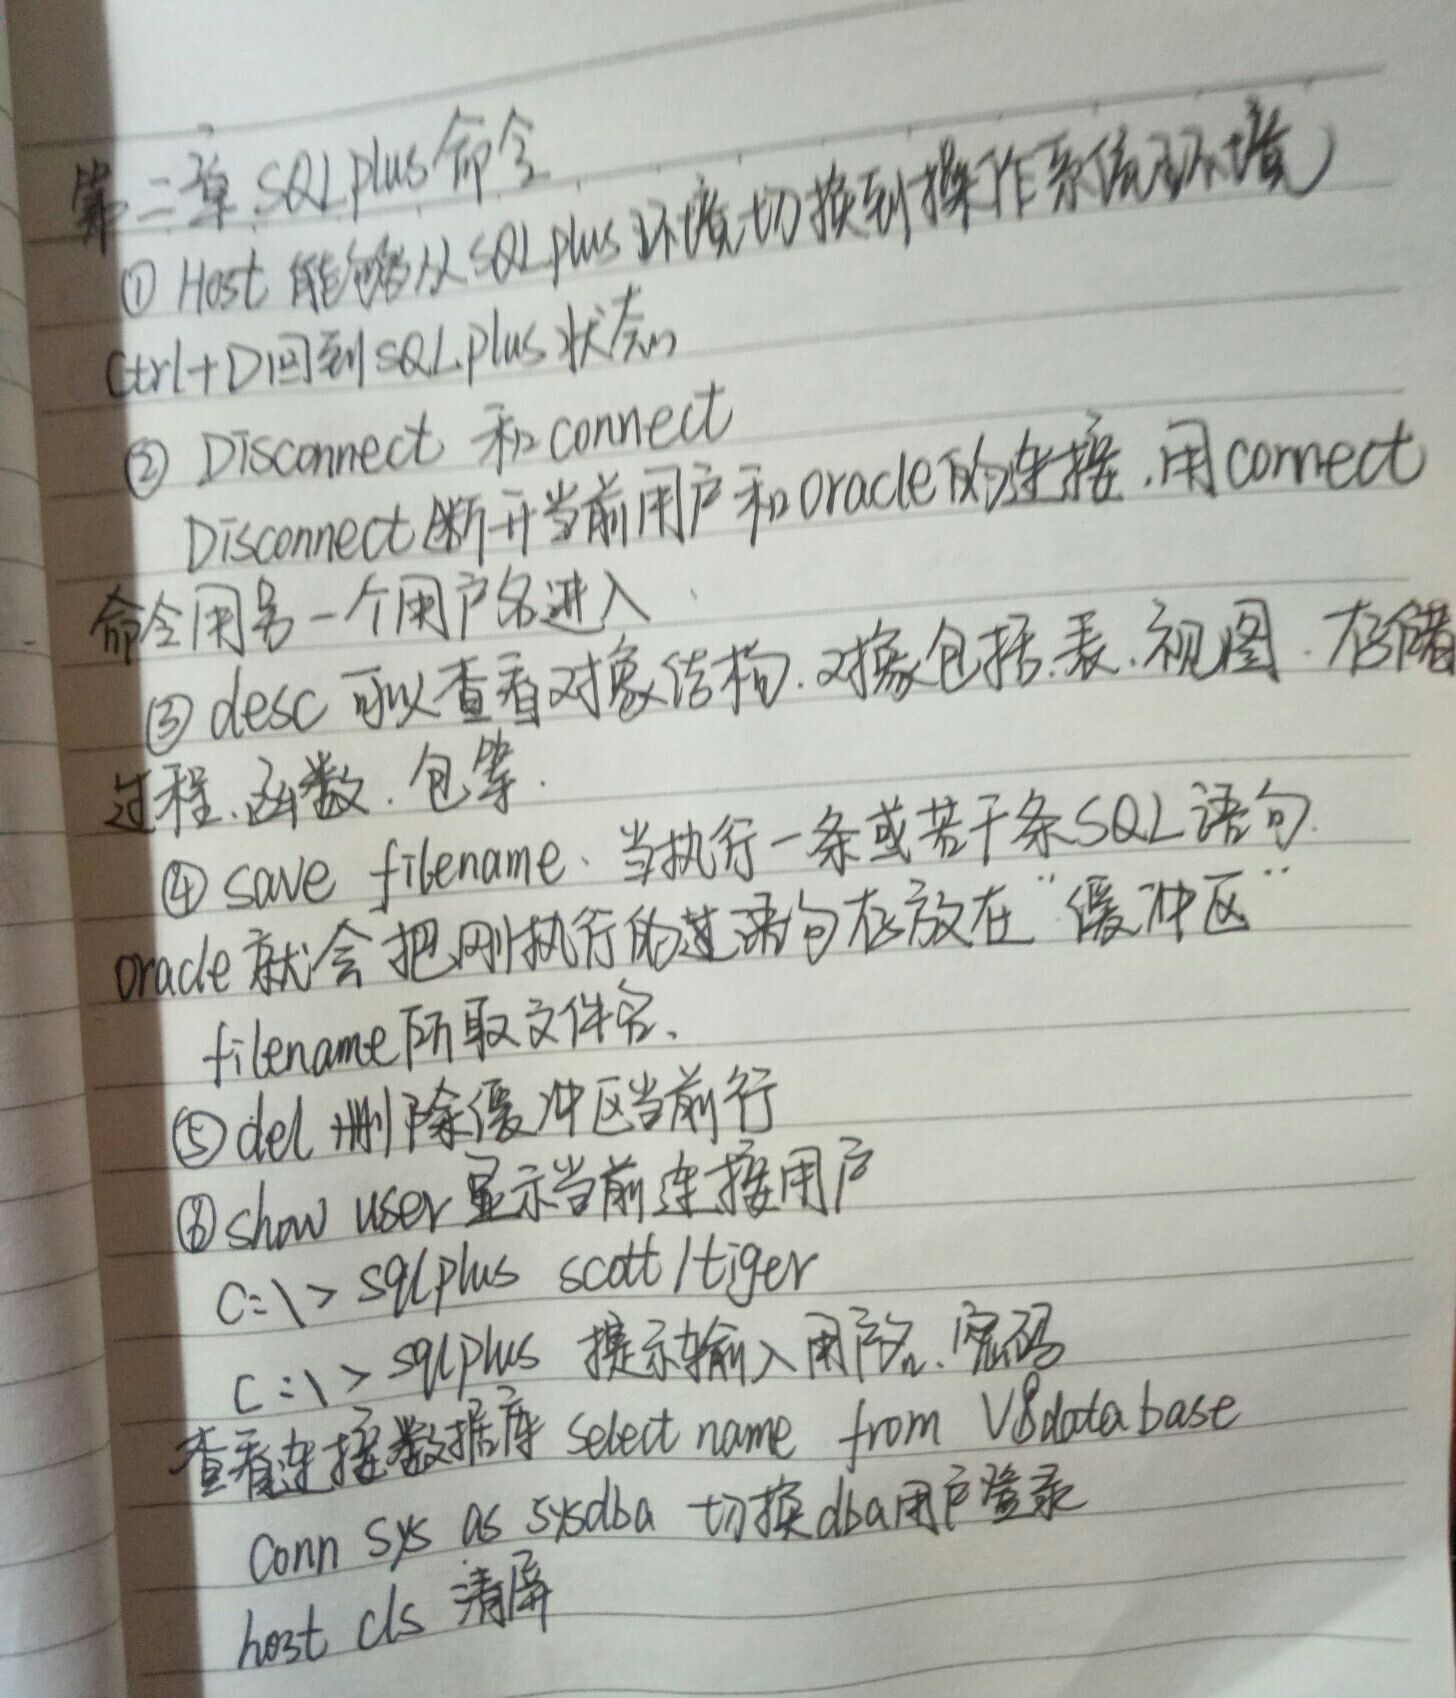 第二章 SQLplus命令
① Host 能够从SQLplus环境切换到操作系统环境
Ctrl+D回到SQLplus状态
② Disconnect 和connect
Disconnect断开当前用户和oracle的连接.用connect
命令用另一个用户名进入
③ desc 可以查看对象结构.对象包括.表.视图.存储
过程.函数.包等.
④ save filename、当执行一条或若干条SQL语句.
oracle就会把刚执行的这语句存放在“缓冲区”
filename所取文件名.
⑤ del 删除缓冲区当前行
⑥ show user 显示当前连接用户
C:\> sqlplus scott/tiger
C:\> sqlplus 提示输入用户名.密码
查看连接数据库 select name from V$database
conn sys as sysdba 切换dba用户登录
host cls 清屏